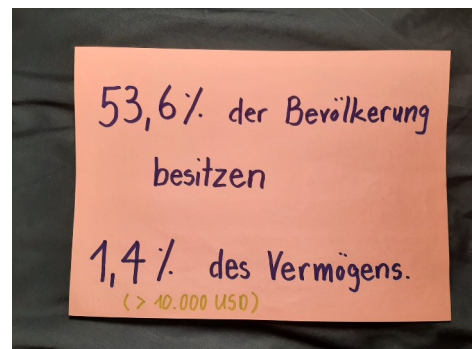 53,6% der Bevölkerung
besitzen
1,4% des Vermögens.
(> 10.000 USD)